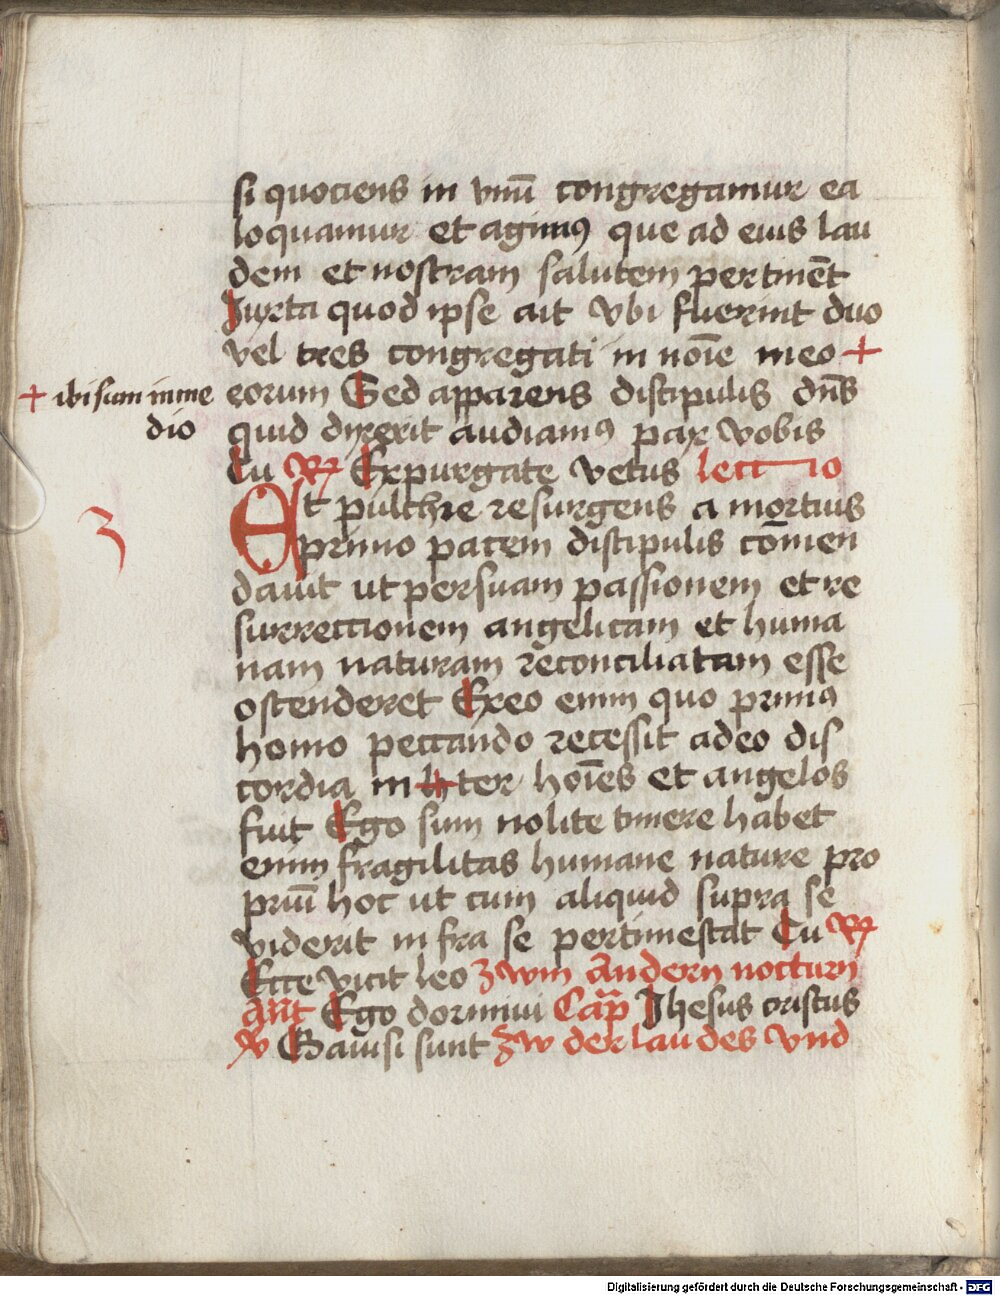 si quociens in vnū congregamur ea
loquamur et agimꝰ que ad eius lau
dem et nostram salutem pertinēt
Juxta quod ipse ait vbi fuerint duo
vel tres congregati in noīe meo +
+ ibi sum in me
dio
eorum Sed apparens discipulis dn̄s
quid dixerit audiamꝰ pax vobis
Tu ℟ Expurgate vetus lectio
3
Et pulchre resurgens a mortuis
primo pacem discipulis cōmen
dauit ut per suam passionem et re
surrectionem angelicam et huma
nam naturam reconciliatam esse
ostenderet Ex eo enim quo primꝰ
homo peccando recessit a deo dis
cordia inter hoīes et angelos
fuit Ego sum nolite timere habet
enim fragilitas humane nature pro
priū hoc ut cum aliquid supra se
viderit in fra se pertimescat Tu ℟
Ecce vicit leo zwm andern nocturn
añt Ego dormiui Cap̄ Jhesus cristus
℣ Gauisi sunt zw der laudes vnd
Digitalisierung gefördert durch die Deutsche Forschungsgemeinschaft - DFG